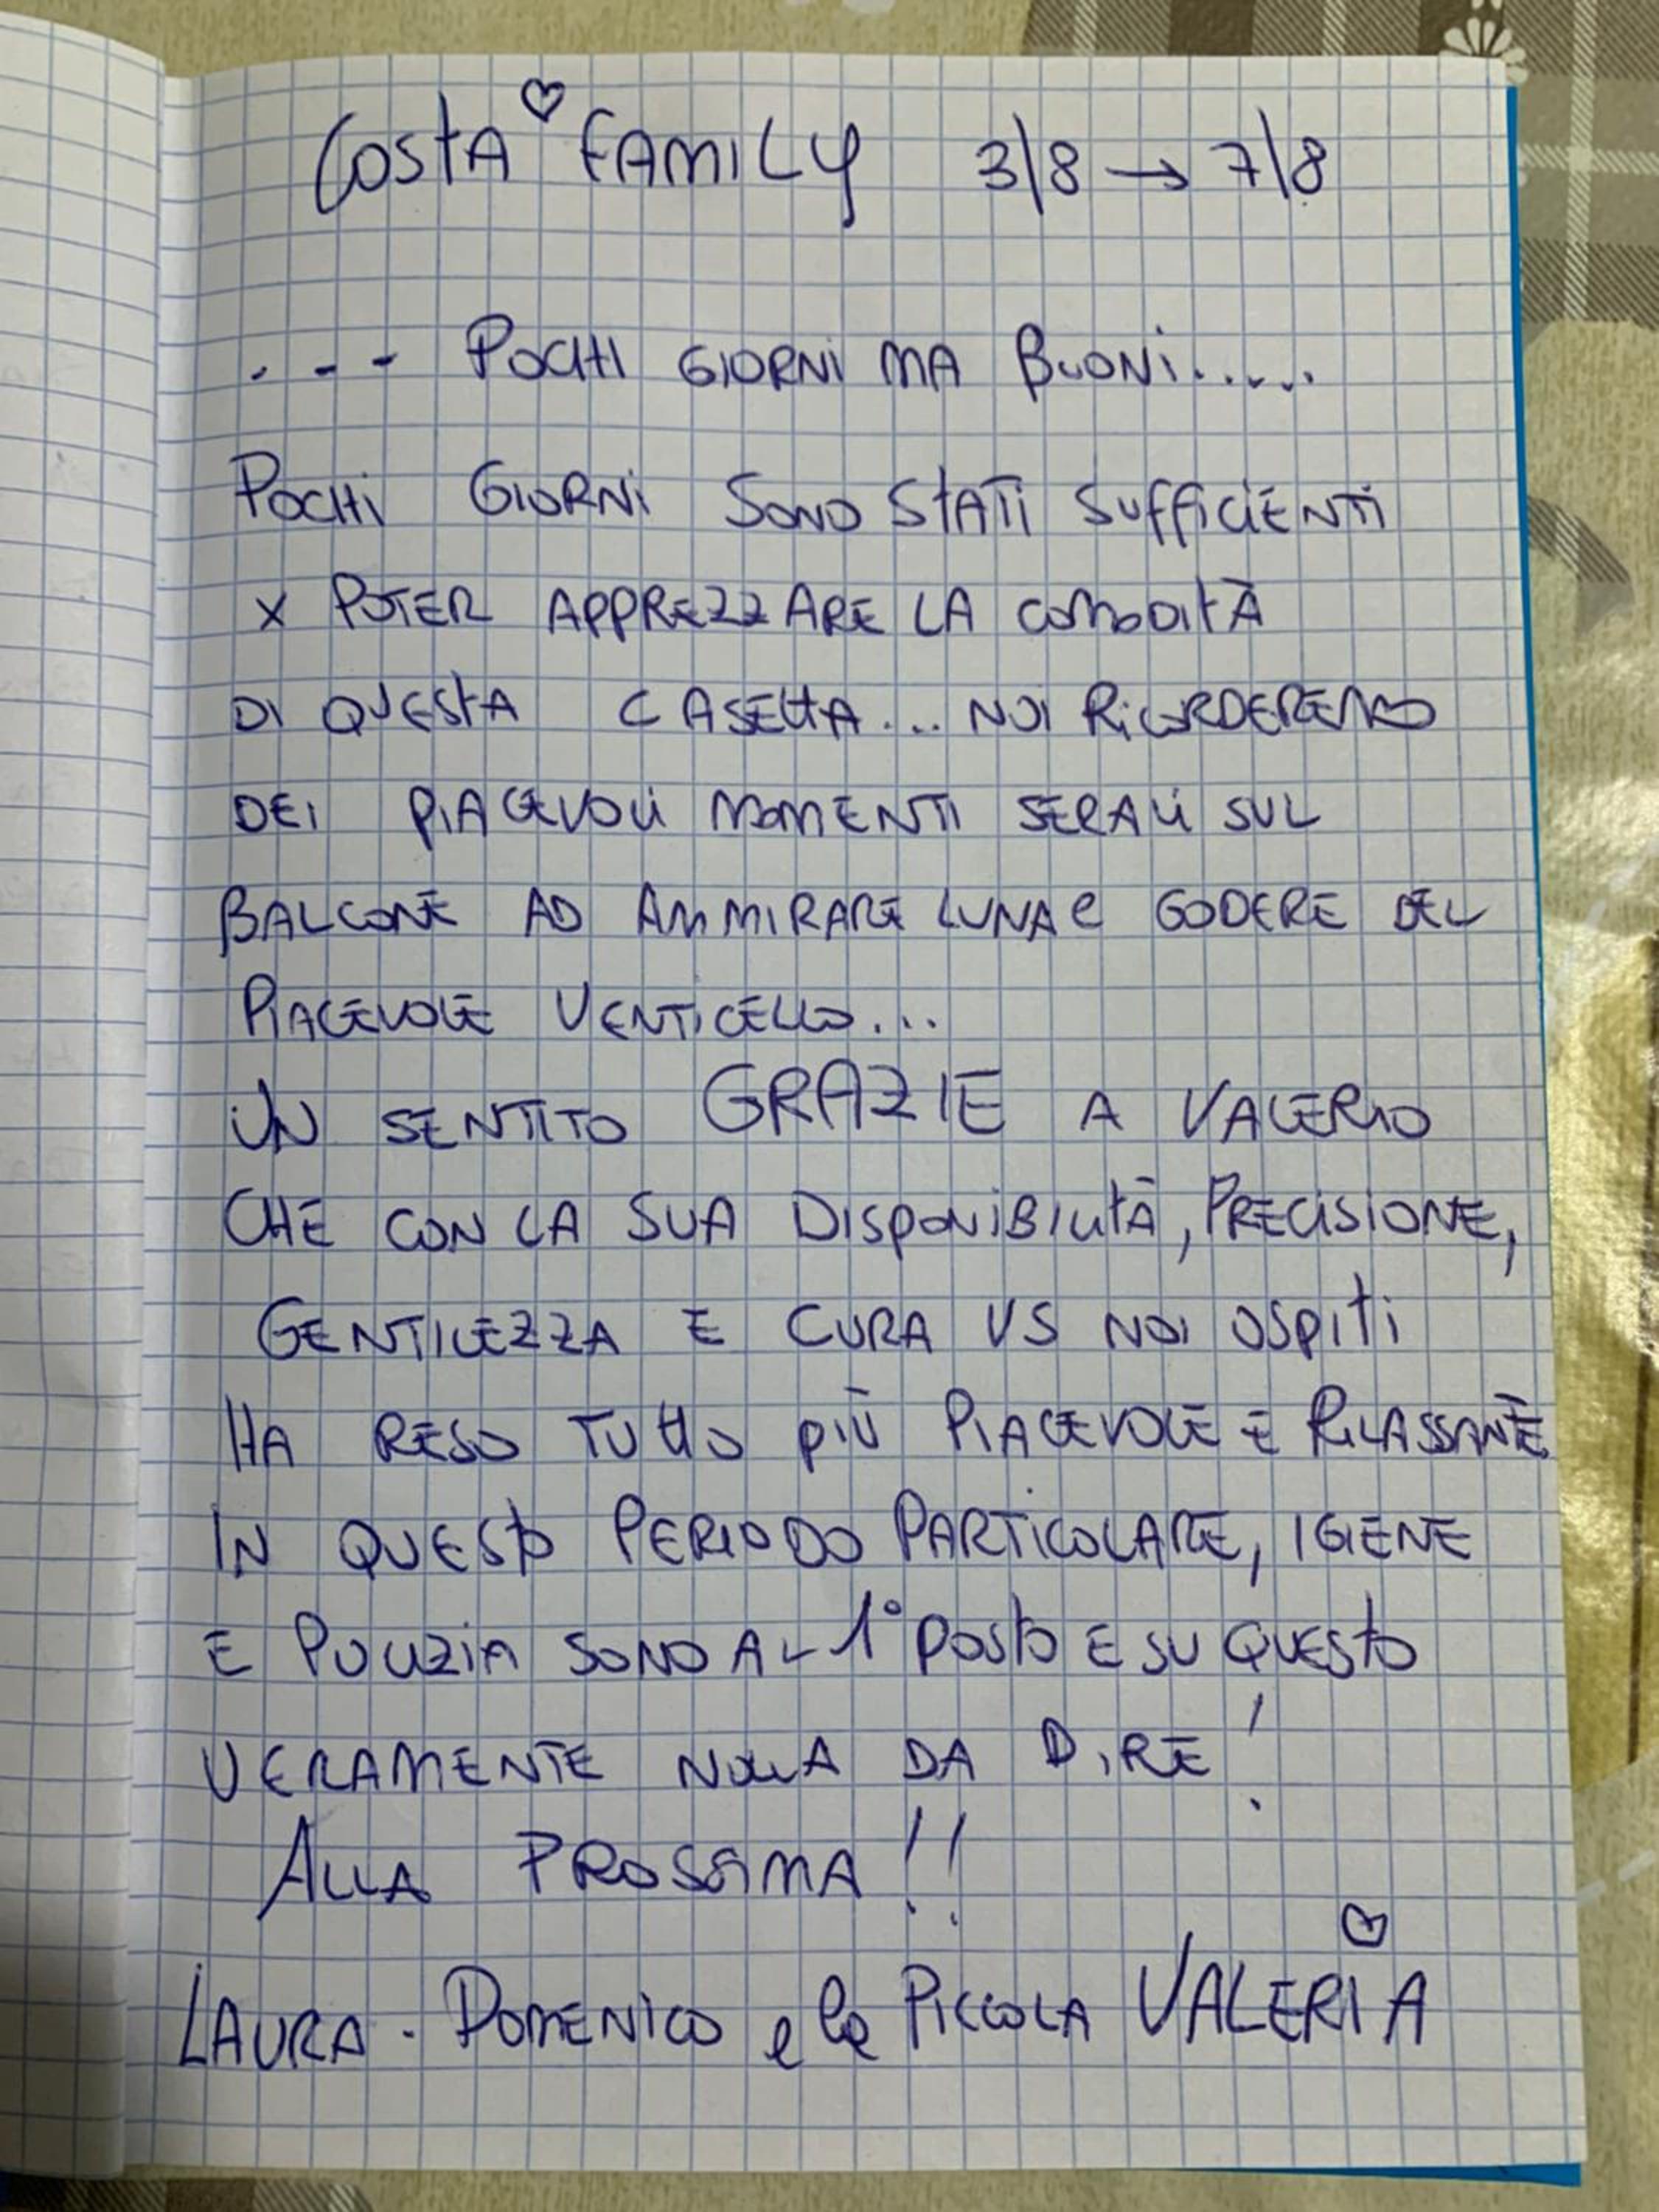 COSTA ♡ FAMILY 3/8 → 7/8
... POCHI GIORNI MA BUONI.....
POCHI GIORNI SONO STATI SUFFICIENTI
X POTER APPREZZARE LA COMODITÀ
DI QUESTA CASETTA... NOI RICORDEREMO
DEI PIACEVOLI MOMENTI SERALI SUL
BALCONE AD AMMIRARE LUNA e GODERE DEL
PIACEVOLE VENTICELLO...
UN SENTITO GRAZIE A VALERIO
CHE CON LA SUA DISPONIBILITÀ, PRECISIONE,
GENTILEZZA E CURA VS NOI OSPITI
HA RESO TUTTO PIÙ PIACEVOLE E RILASSANTE.
IN QUESTO PERIODO PARTICOLARE, IGIENE
E PULIZIA SONO AL 1° POSTO E SU QUESTO
VERAMENTE NULLA DA DIRE!
ALLA PROSSIMA!!
LAURA - DOMENICO e la PICCOLA VALERIA ♡